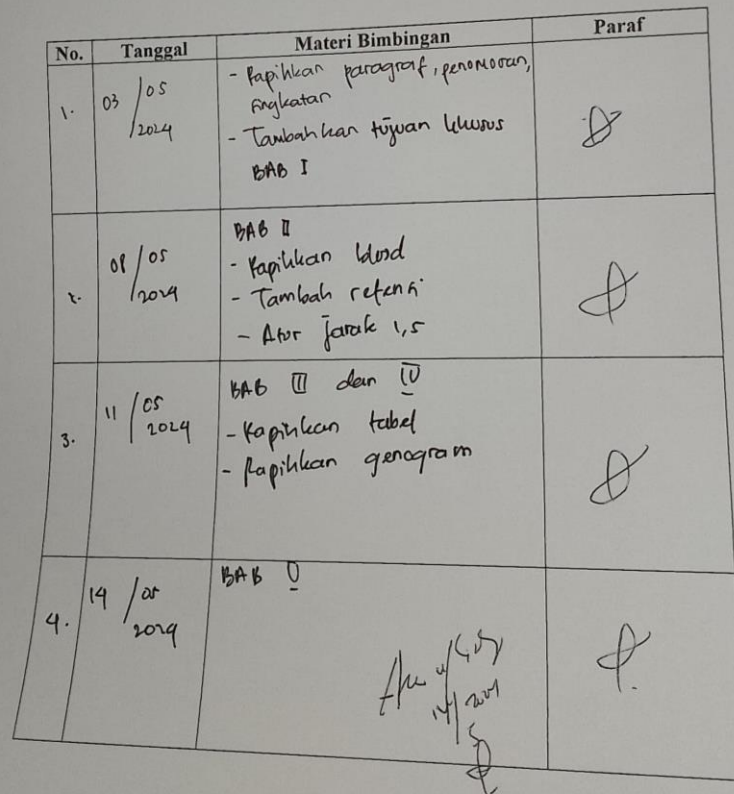 No. Tanggal Materi Bimbingan Paraf
1. 03/05/2024
- Rapihkan paragraf, penomoran,
- Tambahkan tujuan khusus
BAB I
08/05/2024
BAB II
- Rapihkan
- Tambah
- Atur Jarak 1,5
3. 11/05/2024
BAB III dan IV
- Rapihkan tabel
- Rapihkan genogram
4. 14/05/2024
BAB V